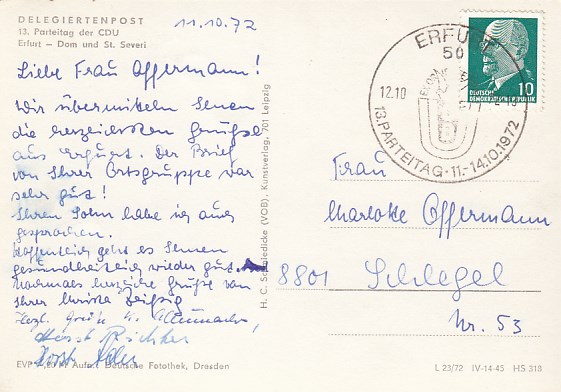 DELEGIERTENPOST
13. Parteitag der CDU
Erfurt – Dom und St. Severi
11.10.72
Liebe Frau Offermann!
Wir übermitteln Ihnen
die herzlichsten Grüße
aus Erfurt. Der Brief
von Ihrer Ortsgruppe war
sehr gut!
Ihren Sohn habe ich auch
gesprochen.
Hoffentlich geht es Ihnen
gesundheitlich wieder gut.
Nochmals herzliche Grüße von
Ihrer Christa
Horst Richter
Horst
EVP
Aufn.: Deutsche Fotothek, Dresden
H. C. Schmiedicke (VOB), Kunstverlag, 701 Leipzig
ERFURT
50
12.10
13.PARTEITAG·11.-14.10.1972
10
DEUTSCHE
DEMOKRATISCHE REPUBLIK
Frau
Charlotte Offermann
8801 Schlegel
Nr. 53
L 23/72 IV-14-45 HS 318